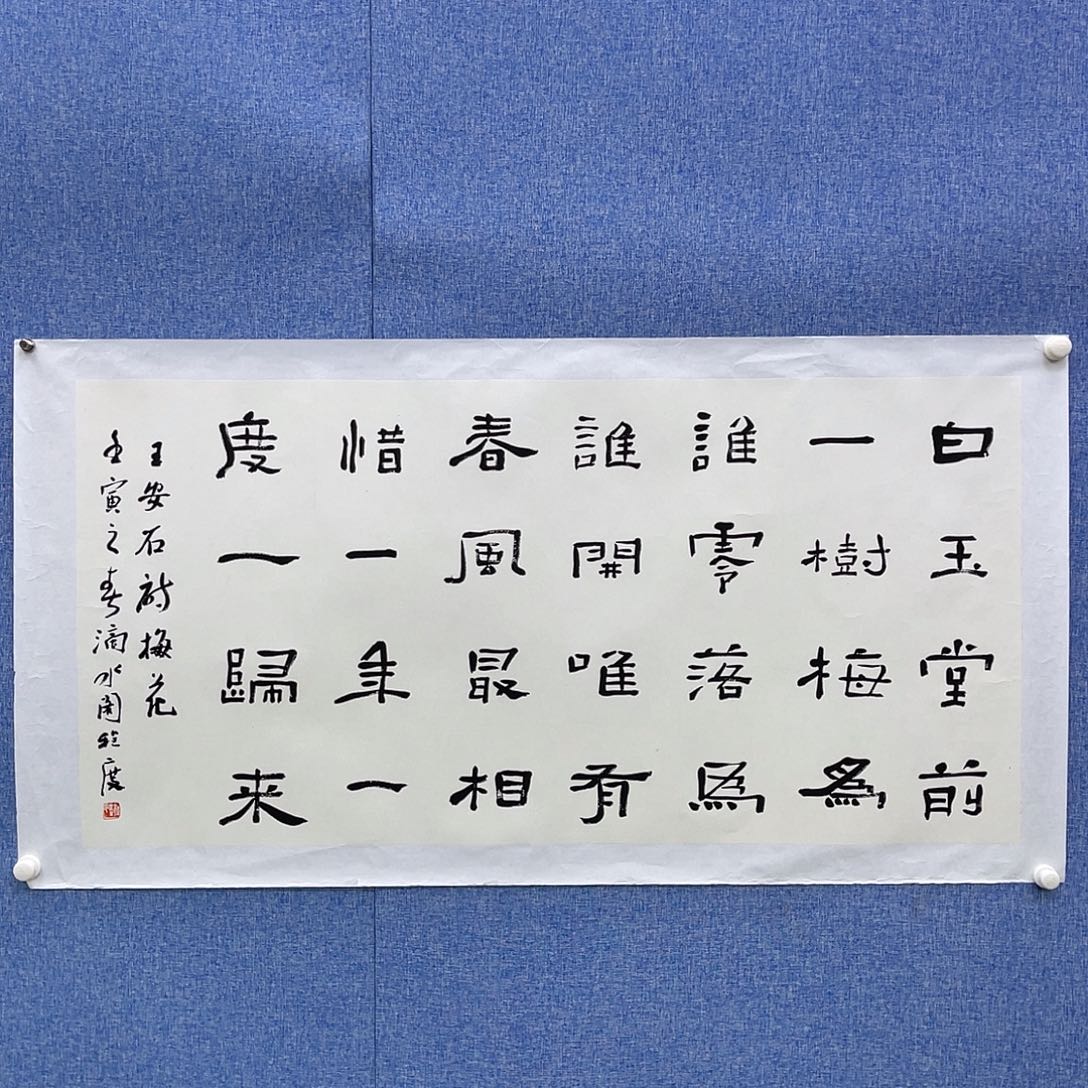 白玉堂前
一樹梅為
誰零落為
誰開唯有
春風最相
惜一年一
度一歸来
王安石詩梅花
壬寅之春滴水閣